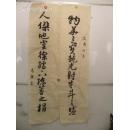 物華天寶龍光射牛斗之墟
人傑地靈徐孺下陳蕃之榻